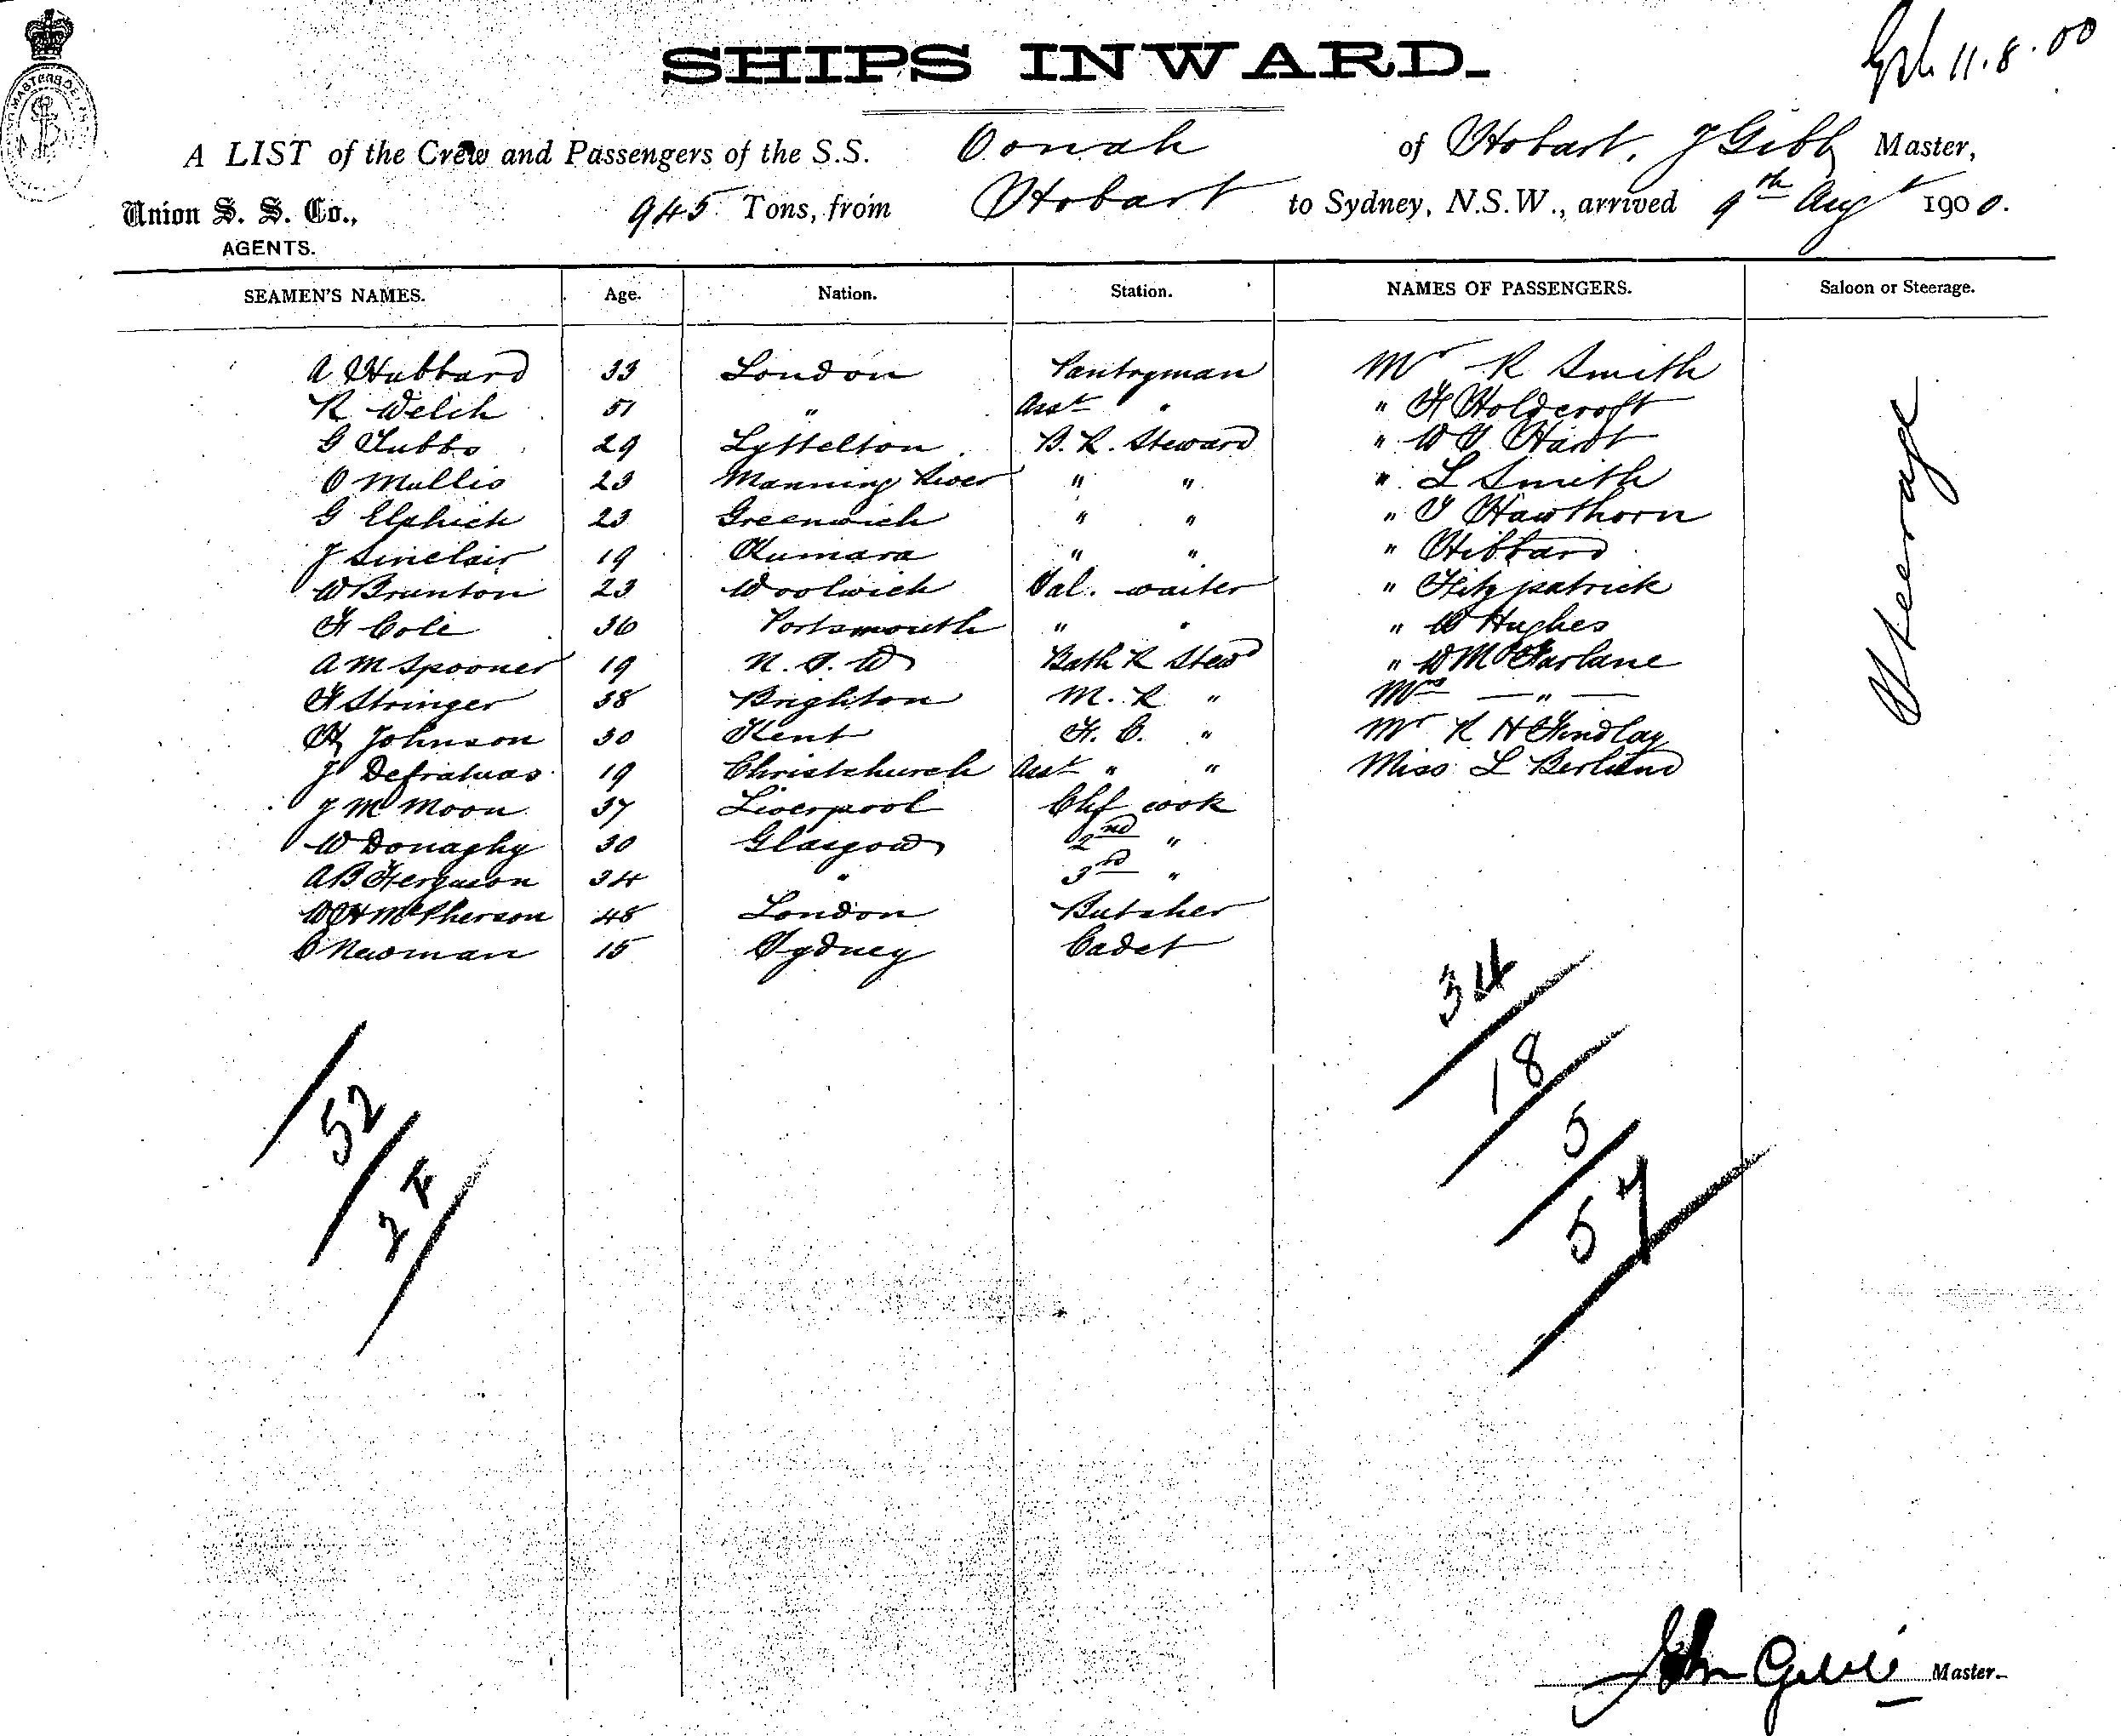 SHIPS INWARD.
11.8.00
A LIST of the Crew and Passengers of the S.S. Oonah of Hobart, J Gibb Master,
Union S. S. Co., 945 Tons, from Hobart to Sydney, N.S.W., arrived 9th Augt 1900.
AGENTS.
SEAMEN'S NAMES. Age. Nation. Station. NAMES OF PASSENGERS. Saloon or Steerage.
A Hubbard 33 London Pantryman Mr R Smith
R Welch 51 " Asst " " F Holdcroft
G Tubbs 29 Lyttelton B. R. Steward " W T Hardt
O Mullis 23 Manning River " " " L Smith
G Elphick 23 Greenwich " " " T Hawthorn
J Sinclair 19 Kumara " " " Hibbard
W Brunton 23 Woolwich Sal. waiter " Fitzpatrick
F Cole 36 Portsmouth " " " W Hughes
A M Spooner 19 N. S. W Bath R Stewd " W McFarlane
F Stringer 38 Brighton M. R " Mrs — " —
Hy Johnson 30 Kent F. C. " Mr R H Findlay
J 19 Christchurch Asst " " Miss L
J M Moon 37 Liverpool Chf cook
W Donaghy 30 Glasgow 2nd "
A B Ferguson 34 " 3rd "
W H McPherson 48 London Butcher
C Newman 15 Sydney Cadet
Steerage
34
18
52
5
57
John Gibb Master.